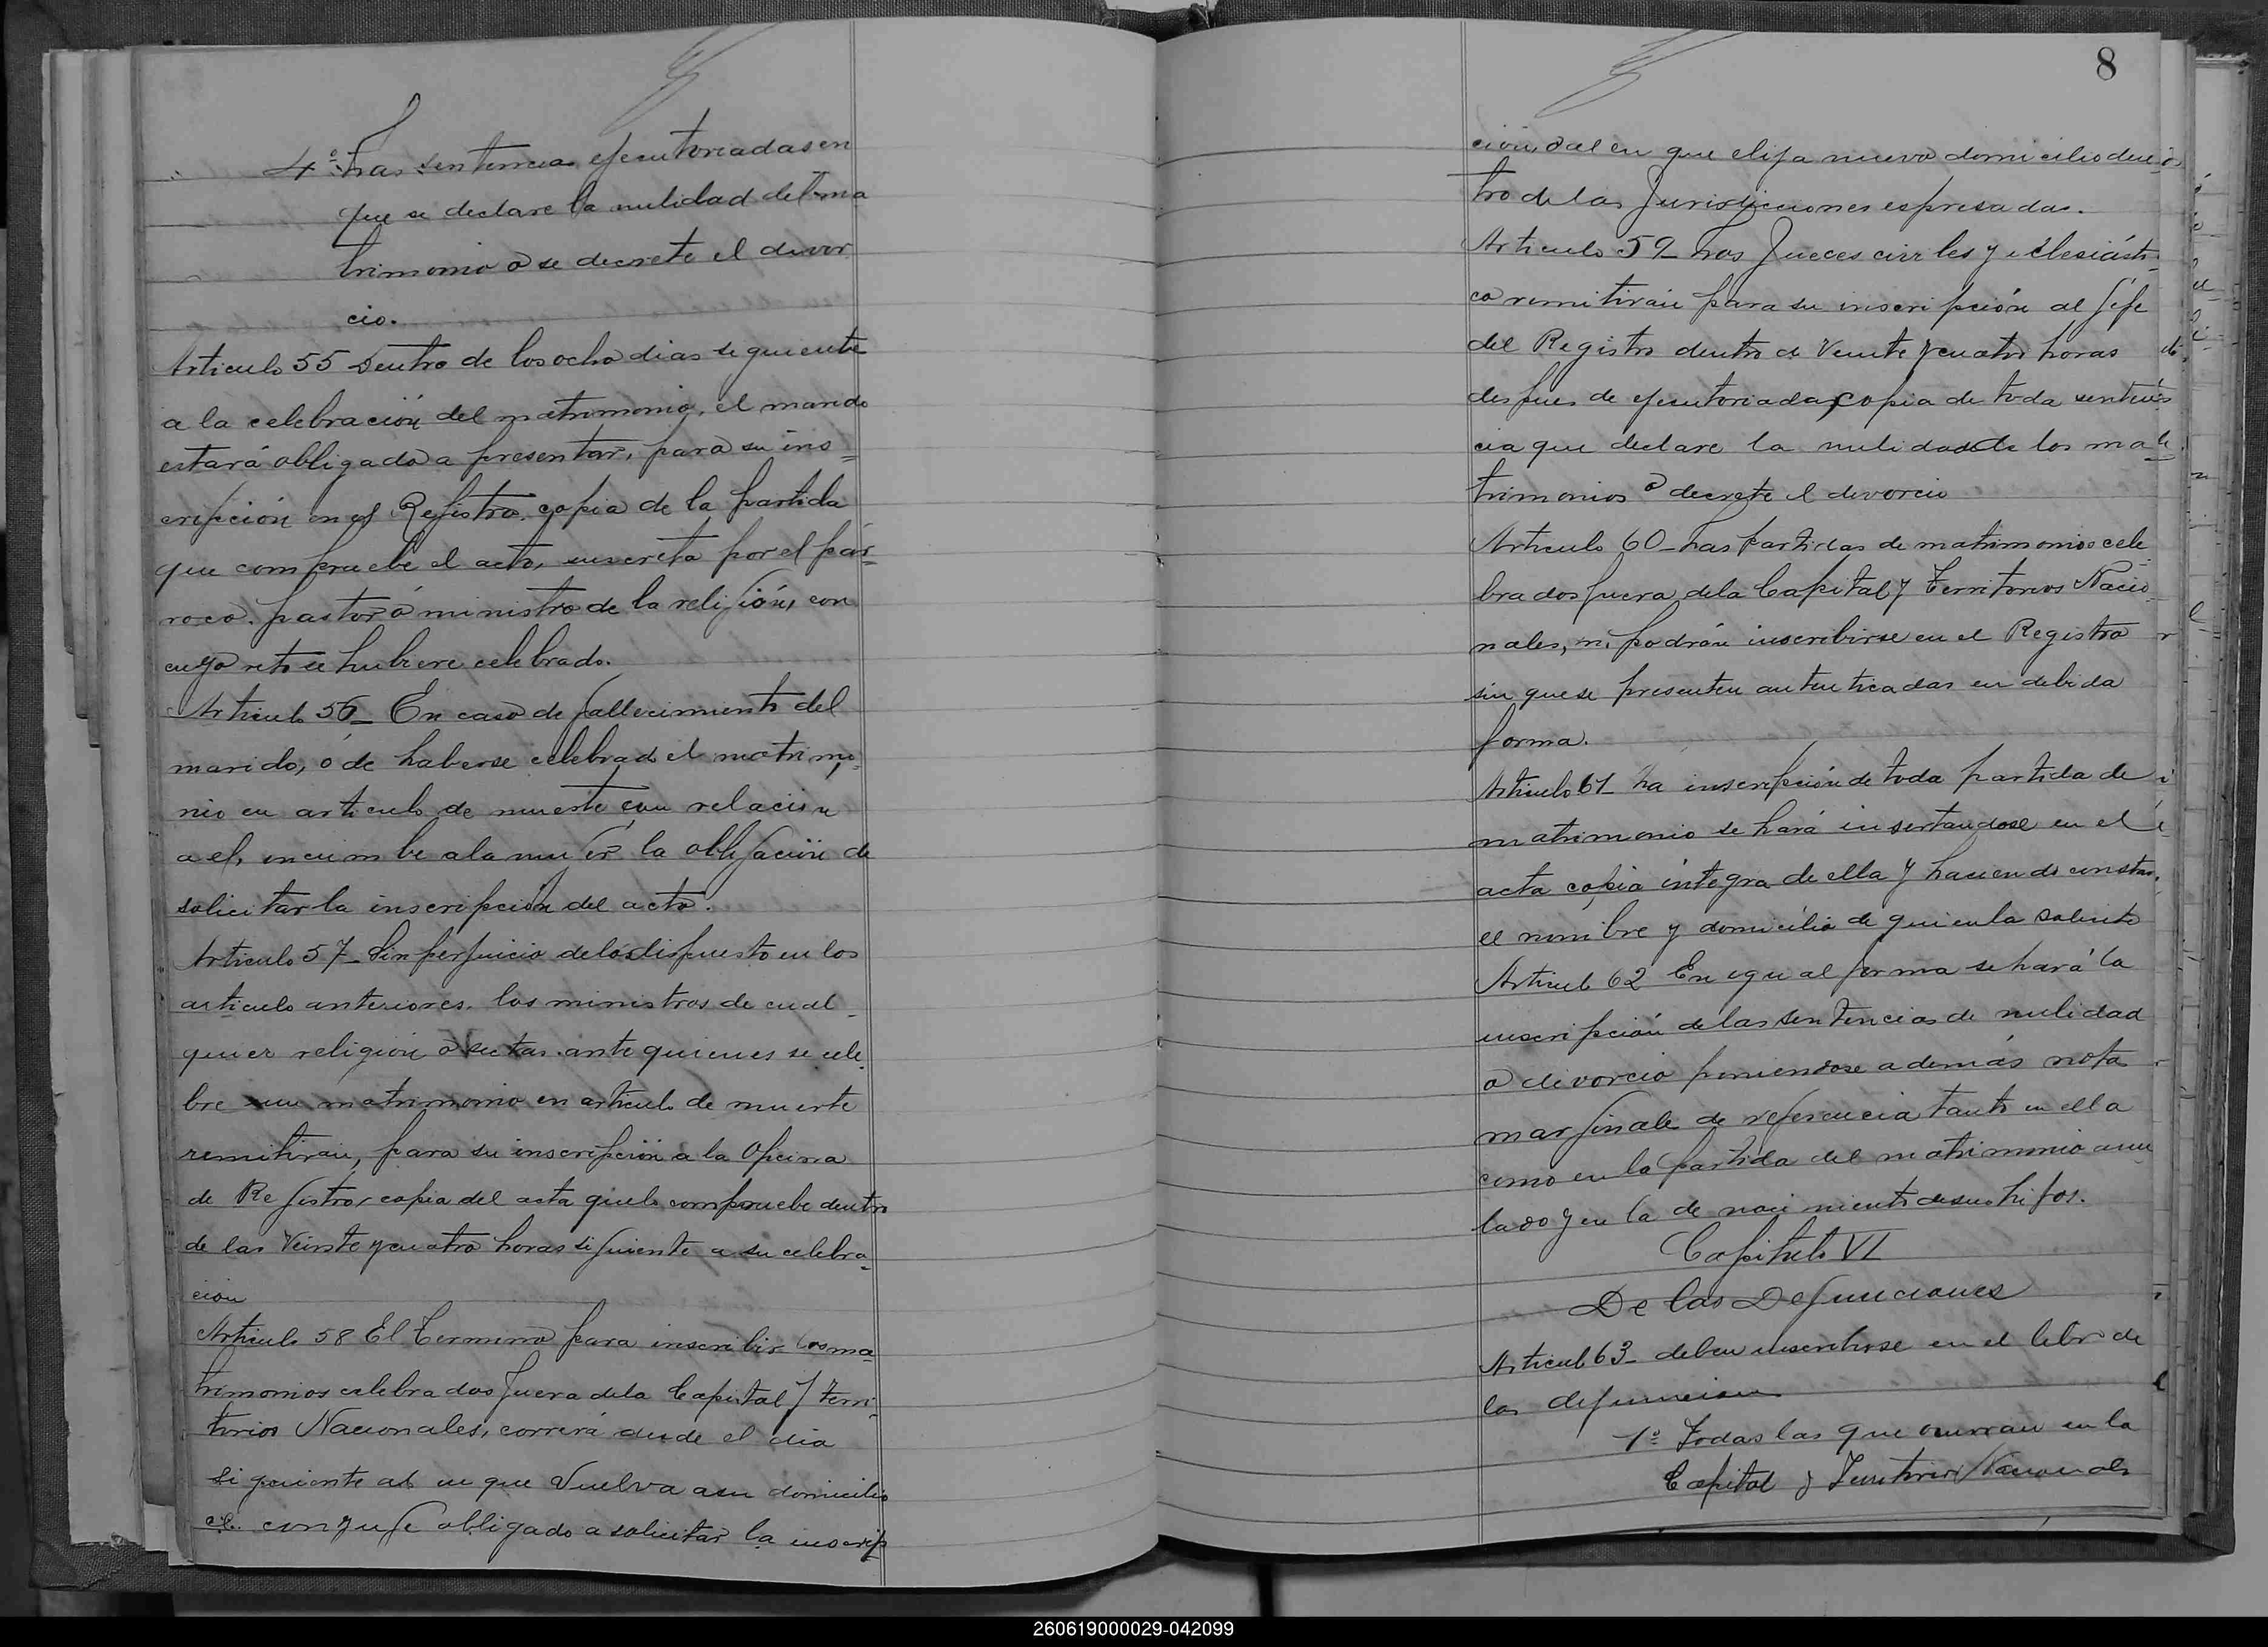 4º Las sentencias ejecutoriadas en
que se declare la nulidad del ma
trimonio o se decrete el divor
cio.
Articulo 55 Dentro de los ocho dias siguiente
a la celebración del matrimonio, el marido
estará obligado a presentar, para su ins=
cripción en el Registro, copia de la partida
que compruebe el acto, suscrita por el pár=
roco, pastor ó ministro de la religión, con
cuyo rito se hubiere celebrado.
Articulo 56_ En caso de fallecimiento del
marido, ó de haberse celebrado el matrimo=
nio en articulo de muerte con relación
a el, incumbe a la mujer la obligación de
solicitar la inscripción del acto.
Articulo 57_ Sin perjuicio de lo dispuesto en los
articulo anteriores, los ministros de cual_
quier religión o sectas ante quienes se cele_
bre un matrimonio en articulo de muerte
remitirán, para su inscripción a la Oficina
de Registro, copia del acta que lo compruebe dentro
de las Veinte y cuatro horas siguiente a su celebra=
ción
Articulo 58 El Termino para inscribir los ma=
trimonios celebrados fuera de la Capital y terri=
torios Nacionales, correrá desde el dia
siguiente al en que Vuelva a su domicilio
el conyuge obligado a solicitar la inscrip
8
ción, o al en que elija nuevo domicilio den=
tro de las Jurisdicciones espresadas.
Articulo 59_ Los Jueces civiles y eclesiásti
co remitirán para su inscripción al Jefe
del Registro dentro de Veinte y cuatro horas
despues de ejecutoriada, copia de toda senten=
cia que declare la nulidad de los ma=
trimonios o decrete el divorcio
Articulo 60_ Las partidas de matrimonios cele
brados fuera de la Capital y Territorios Nacio_
nales, no podrán inscribirse en el Registro
sin que se presenten autenticadas en debida
forma.
Articulo 61_ La inscripción de toda partida de
matrimonio se hará insertandose en el
acta copia integra de ella y haciendo constar
el nombre y domicilio de quien la solicite
Articulo 62 En igual forma se hará la
inscripción de las sentencias de nulidad
o divorcio poniendose además nota
marginale de referencia tanto en ella
como en la partida del matrimonio anu
lado y en la de nacimiento de sus hijos.
Capitulo VI
De las Defunciones
Articulo 63_ deben inscribirse en el libro de
las defuncion
1º Todas las que ocurran en la
Capital y Territorios Nacionales
260619000029-042099